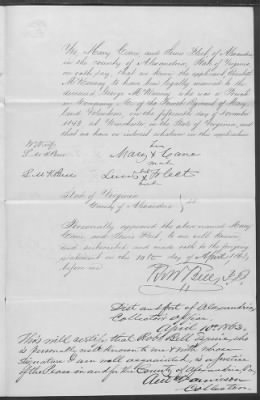 We, Mary Cane and Lewis Fleet of Alexandria
in the county of Alexandria, State of Virginia
on oath say, that we knew the applicant Elizabeth
McKinney to have been legally married to the
deceased George McKinney who was a Private
in Company of the Fourth Regiment of Mary
land Volunteers, on the fifteenth day of November
1843 at Winchester in the State of Virginia, and
that we have no interest whatever in this application
Witness
her
Mary X Cane
mark
his
Lewis X Fleet
mark
State of Virginia
County of Alexandria
Personally appeared the above named Mary
Cane and Lewis Fleet, to me well known
and subscribed and made oath to the foregoing
statement on the 10th day of April 1863,
before me
Robt Bell, J.P.
Dist and Port of Alexandria
Collectors office
April 10th 1863.
This will certify that Robt Bell Esquire, who
is personally well known to me & with whose
signature I am well acquainted, is a justice
of the Peace in and for the County of Alexandria Va,
Collector